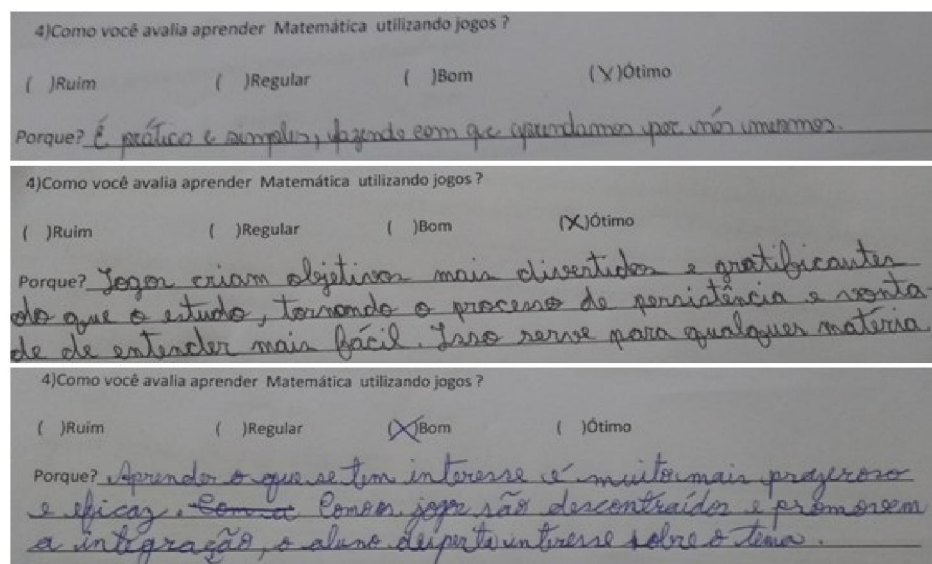 4)Como você avalia aprender Matemática utilizando jogos ?
( )Ruim ( )Regular ( )Bom (X)Ótimo
Porque? É prático e simples, fazendo com que aprendamos por nós mesmos.
4)Como você avalia aprender Matemática utilizando jogos ?
( )Ruim ( )Regular ( )Bom (X)Ótimo
Porque? Jogos criam objetivos mais divertidos e gratificantes
do que o estudo, tornando o processo de persistência e vonta-
de de entender mais fácil. Isso serve para qualquer matéria
4)Como você avalia aprender Matemática utilizando jogos ?
( )Ruim ( )Regular (X)Bom ( )Ótimo
Porque? Aprender o que se tem interesse é muito mais prazeroso
e eficaz. Como os jogos são descontraídos e promovem
a integração, o aluno desperta interesse sobre o tema.